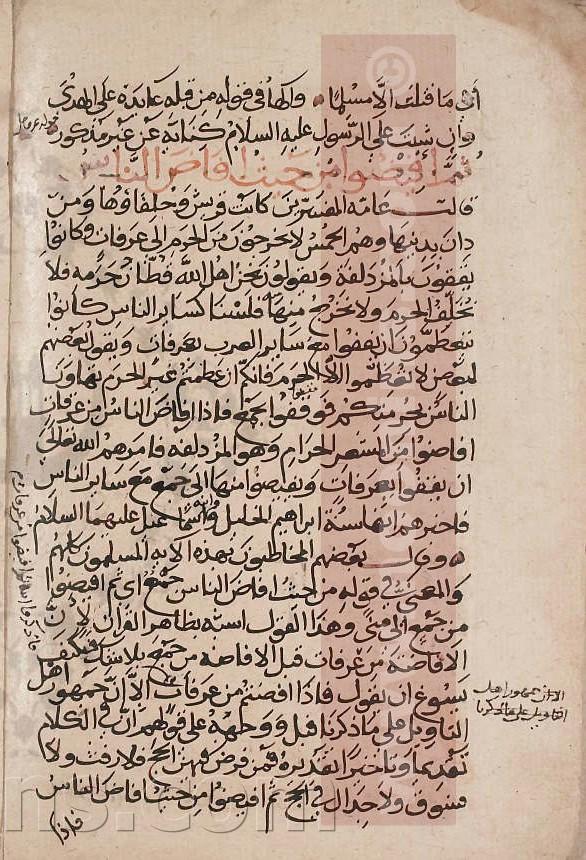 أي ما قتلت الا مسلما والهاء في قوله من قبله عايدة على الهدى
وان شئت على الرسول عليه السلام كناية عن غير مذكور
ثم افيضوا من حيث افاض الناس
قالت عامة المفسرين كانت قريش وحلفاؤها ومن
دان بدينها وهم الحمس لا يخرجون من الحرم الى عرفات وكانوا
يقفون بالمزدلفة ويقولون نحن اهل الله قطان حرمه فلا
نخلف الحرم ولا نخرج منها فلسنا كساير الناس كانوا
يتعظمون ان يقفوا مع ساير العرب بعرفات ويقول بعضهم
لبعض لا تعظموا الا الحرم فانكم ان عظمتم غير الحرم تهاون
الناس بحرمتكم فوقفوا بجمع فاذا افاض الناس من عرفات
افاضوا من المشعر الحرام وهو المزدلفة فامرهم الله تعالى
ان يقفوا بعرفات ويفيضوا منها الى جمع مع ساير الناس
فاخبرهم انها سنة ابراهيم الخليل واسماعيل عليهما السلام
وقال بعضهم المخاطبون بهذه الاية المسلمون كلهم
والمعنى في قوله من حيث افاض الناس جمع اي ثم افيضوا
من جمع الى منى وهذا القول اشبه بظاهر القرآن لان
الافاضة من عرفات قبل الافاضة من جمع بلا شك فكيف
يسوغ ان يقول فاذا افضتم من عرفات الا ان جمهور اهل
التاويل على ما ذكرنا قبل ووجهه على قولهم ان في الكلام
تقديما وتاخيرا تقديره فمن فرض فيهن الحج فلا رفث ولا
فسوق ولا جدال في الحج ثم افيضوا من حيث افاض الناس
فاذا
الا ان جمهور اهل
التاويل على ما ذكرنا
ns.com